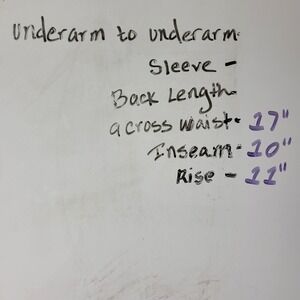 underarm to underarm-
Sleeve -
Back Length-
across waist- 17"
Inseam- 10"
Rise - 11"